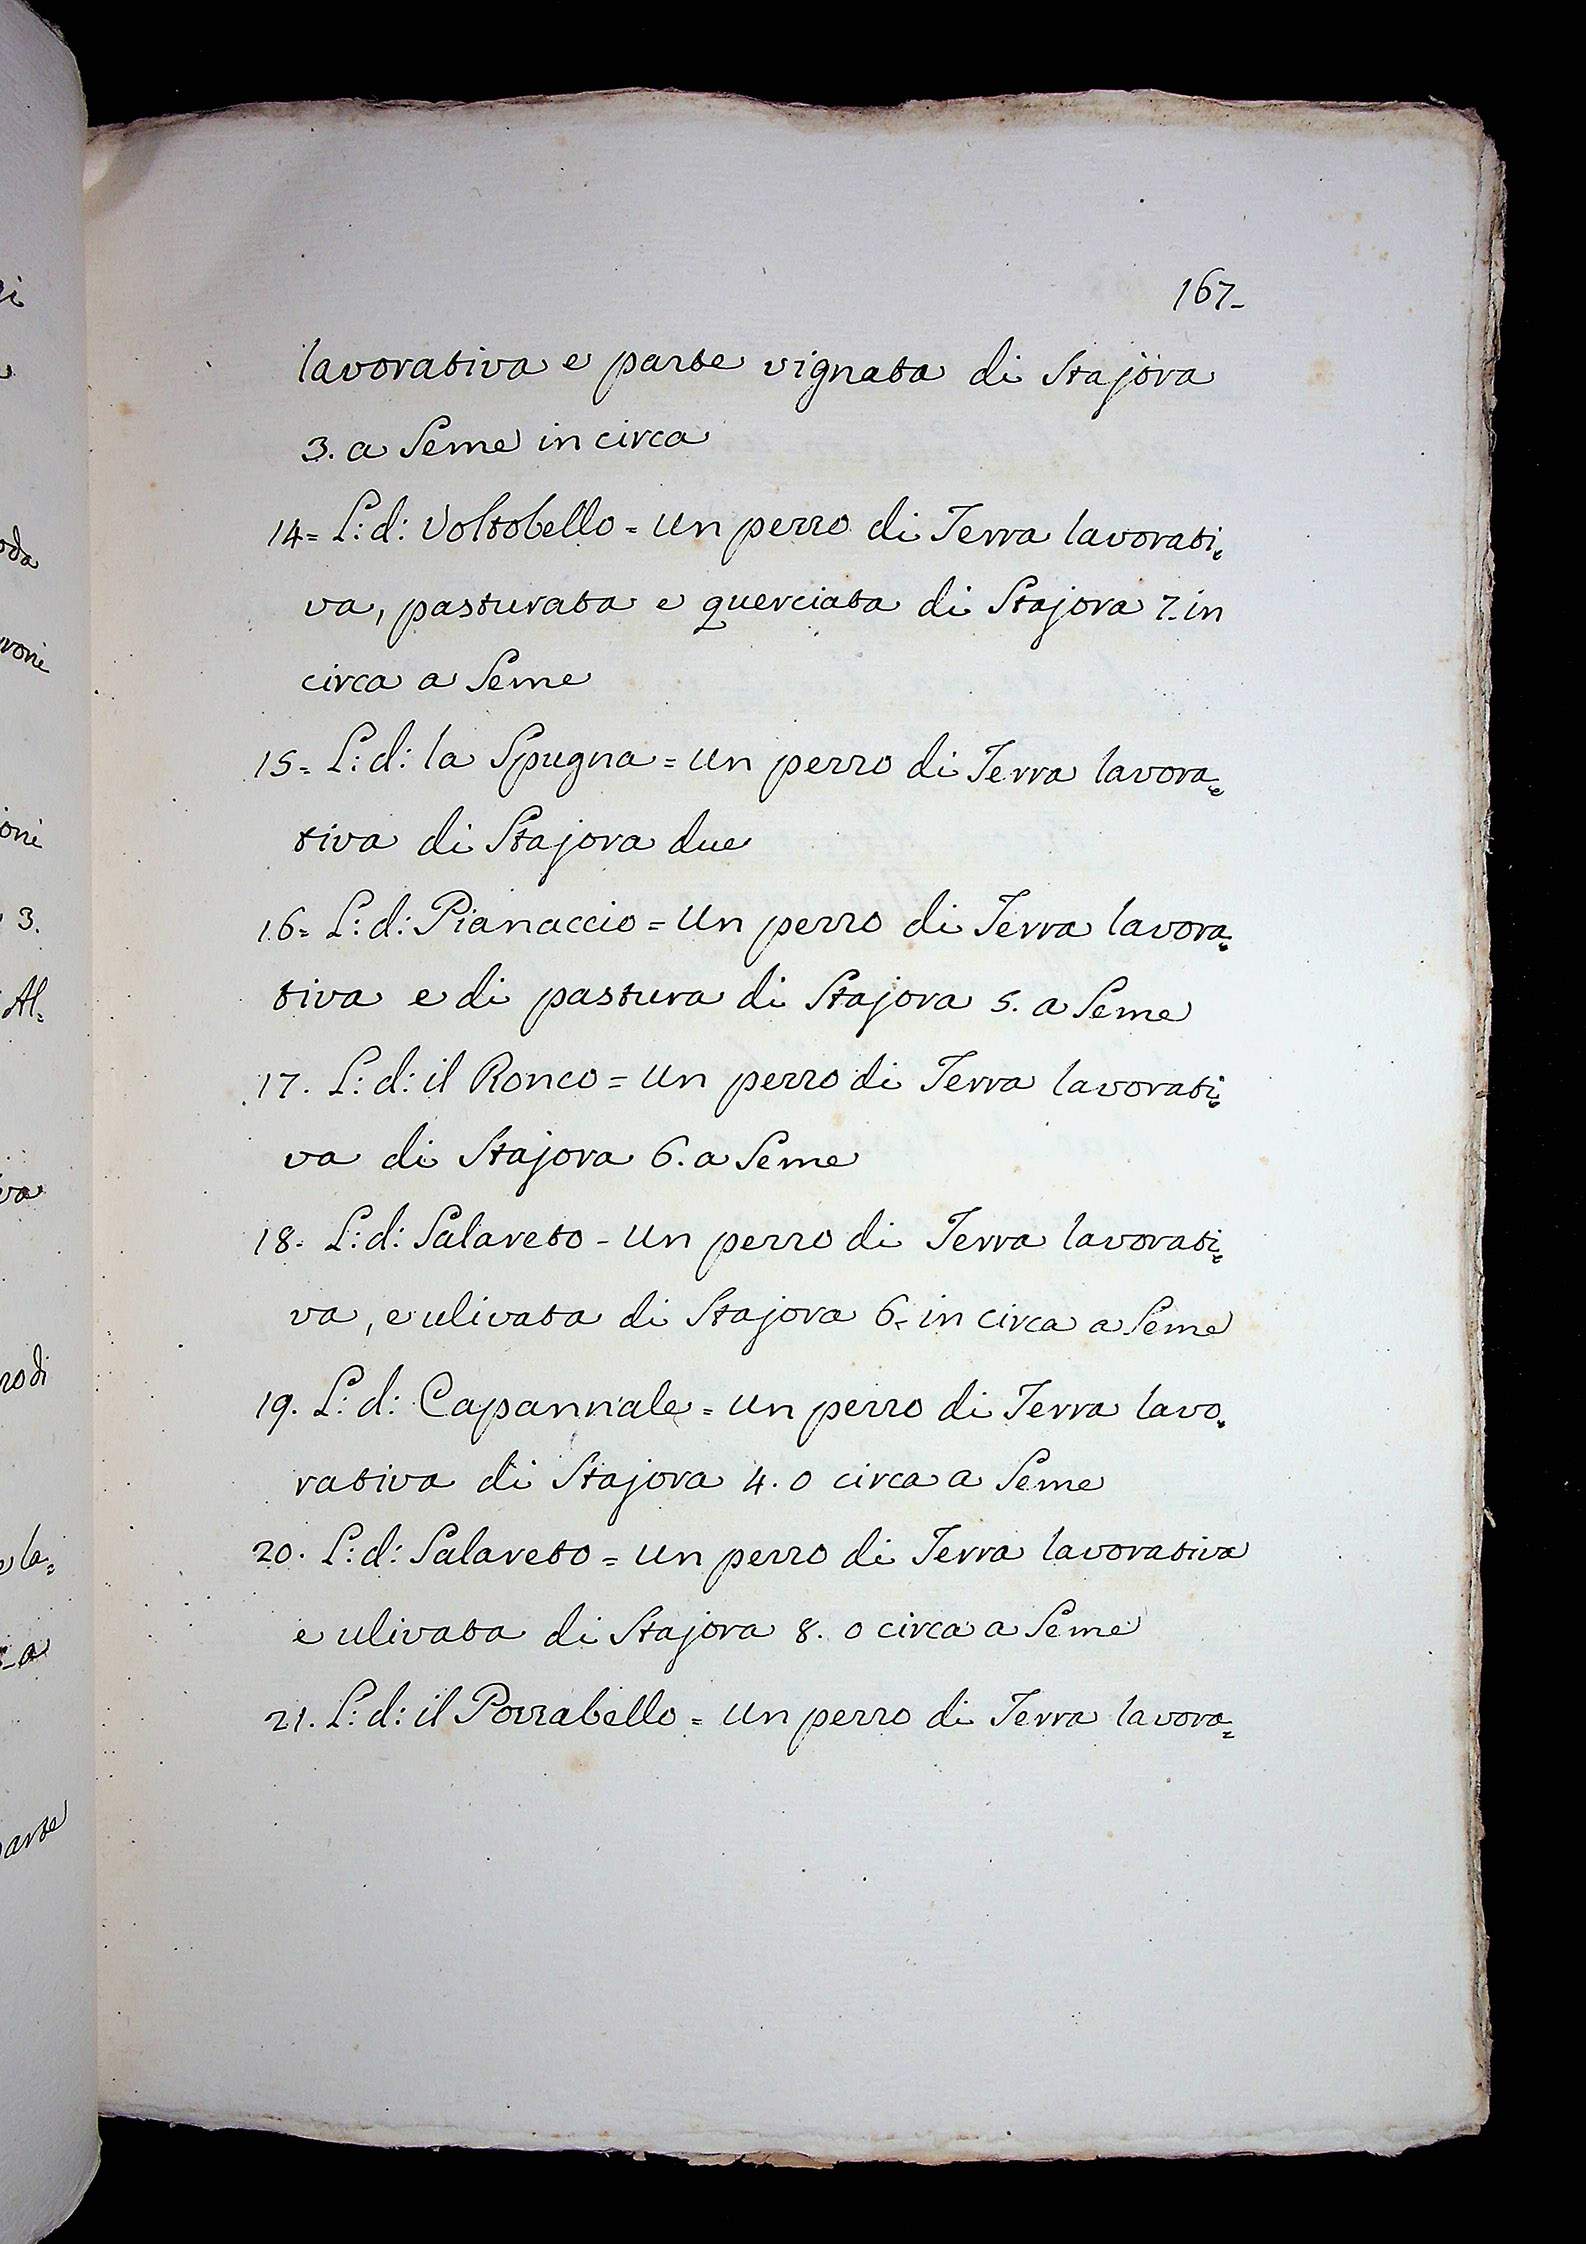 167-
lavorativa e parte vignata di Stajora
3. a Seme in circa
14= L: d: Voltobello = Un pezzo di Terra lavorati=
va, pasturata e querciata di Stajora 7. in
circa a Seme
15= L: d: la Spugna = Un pezzo di Terra lavora=
tiva di Stajora due
16= L: d: Pianaccio = Un pezzo di Terra lavora=
tiva e di pastura di Stajora 5. a Seme
17. L: d: il Ronco = Un pezzo di Terra lavorati=
va di Stajora 6. a Seme
18. L: d: Salareto - Un pezzo di Terra lavorati=
va, e ulivata di Stajora 6. in circa a Seme
19. L: d: Capannale = Un pezzo di Terra lavo=
rativa di Stajora 4. o circa a Seme
20. L: d: Salareto = Un pezzo di Terra lavorativa
e ulivata di Stajora 8. o circa a Seme
21. L: d: il Pozzabello = Un pezzo di Terra lavora=